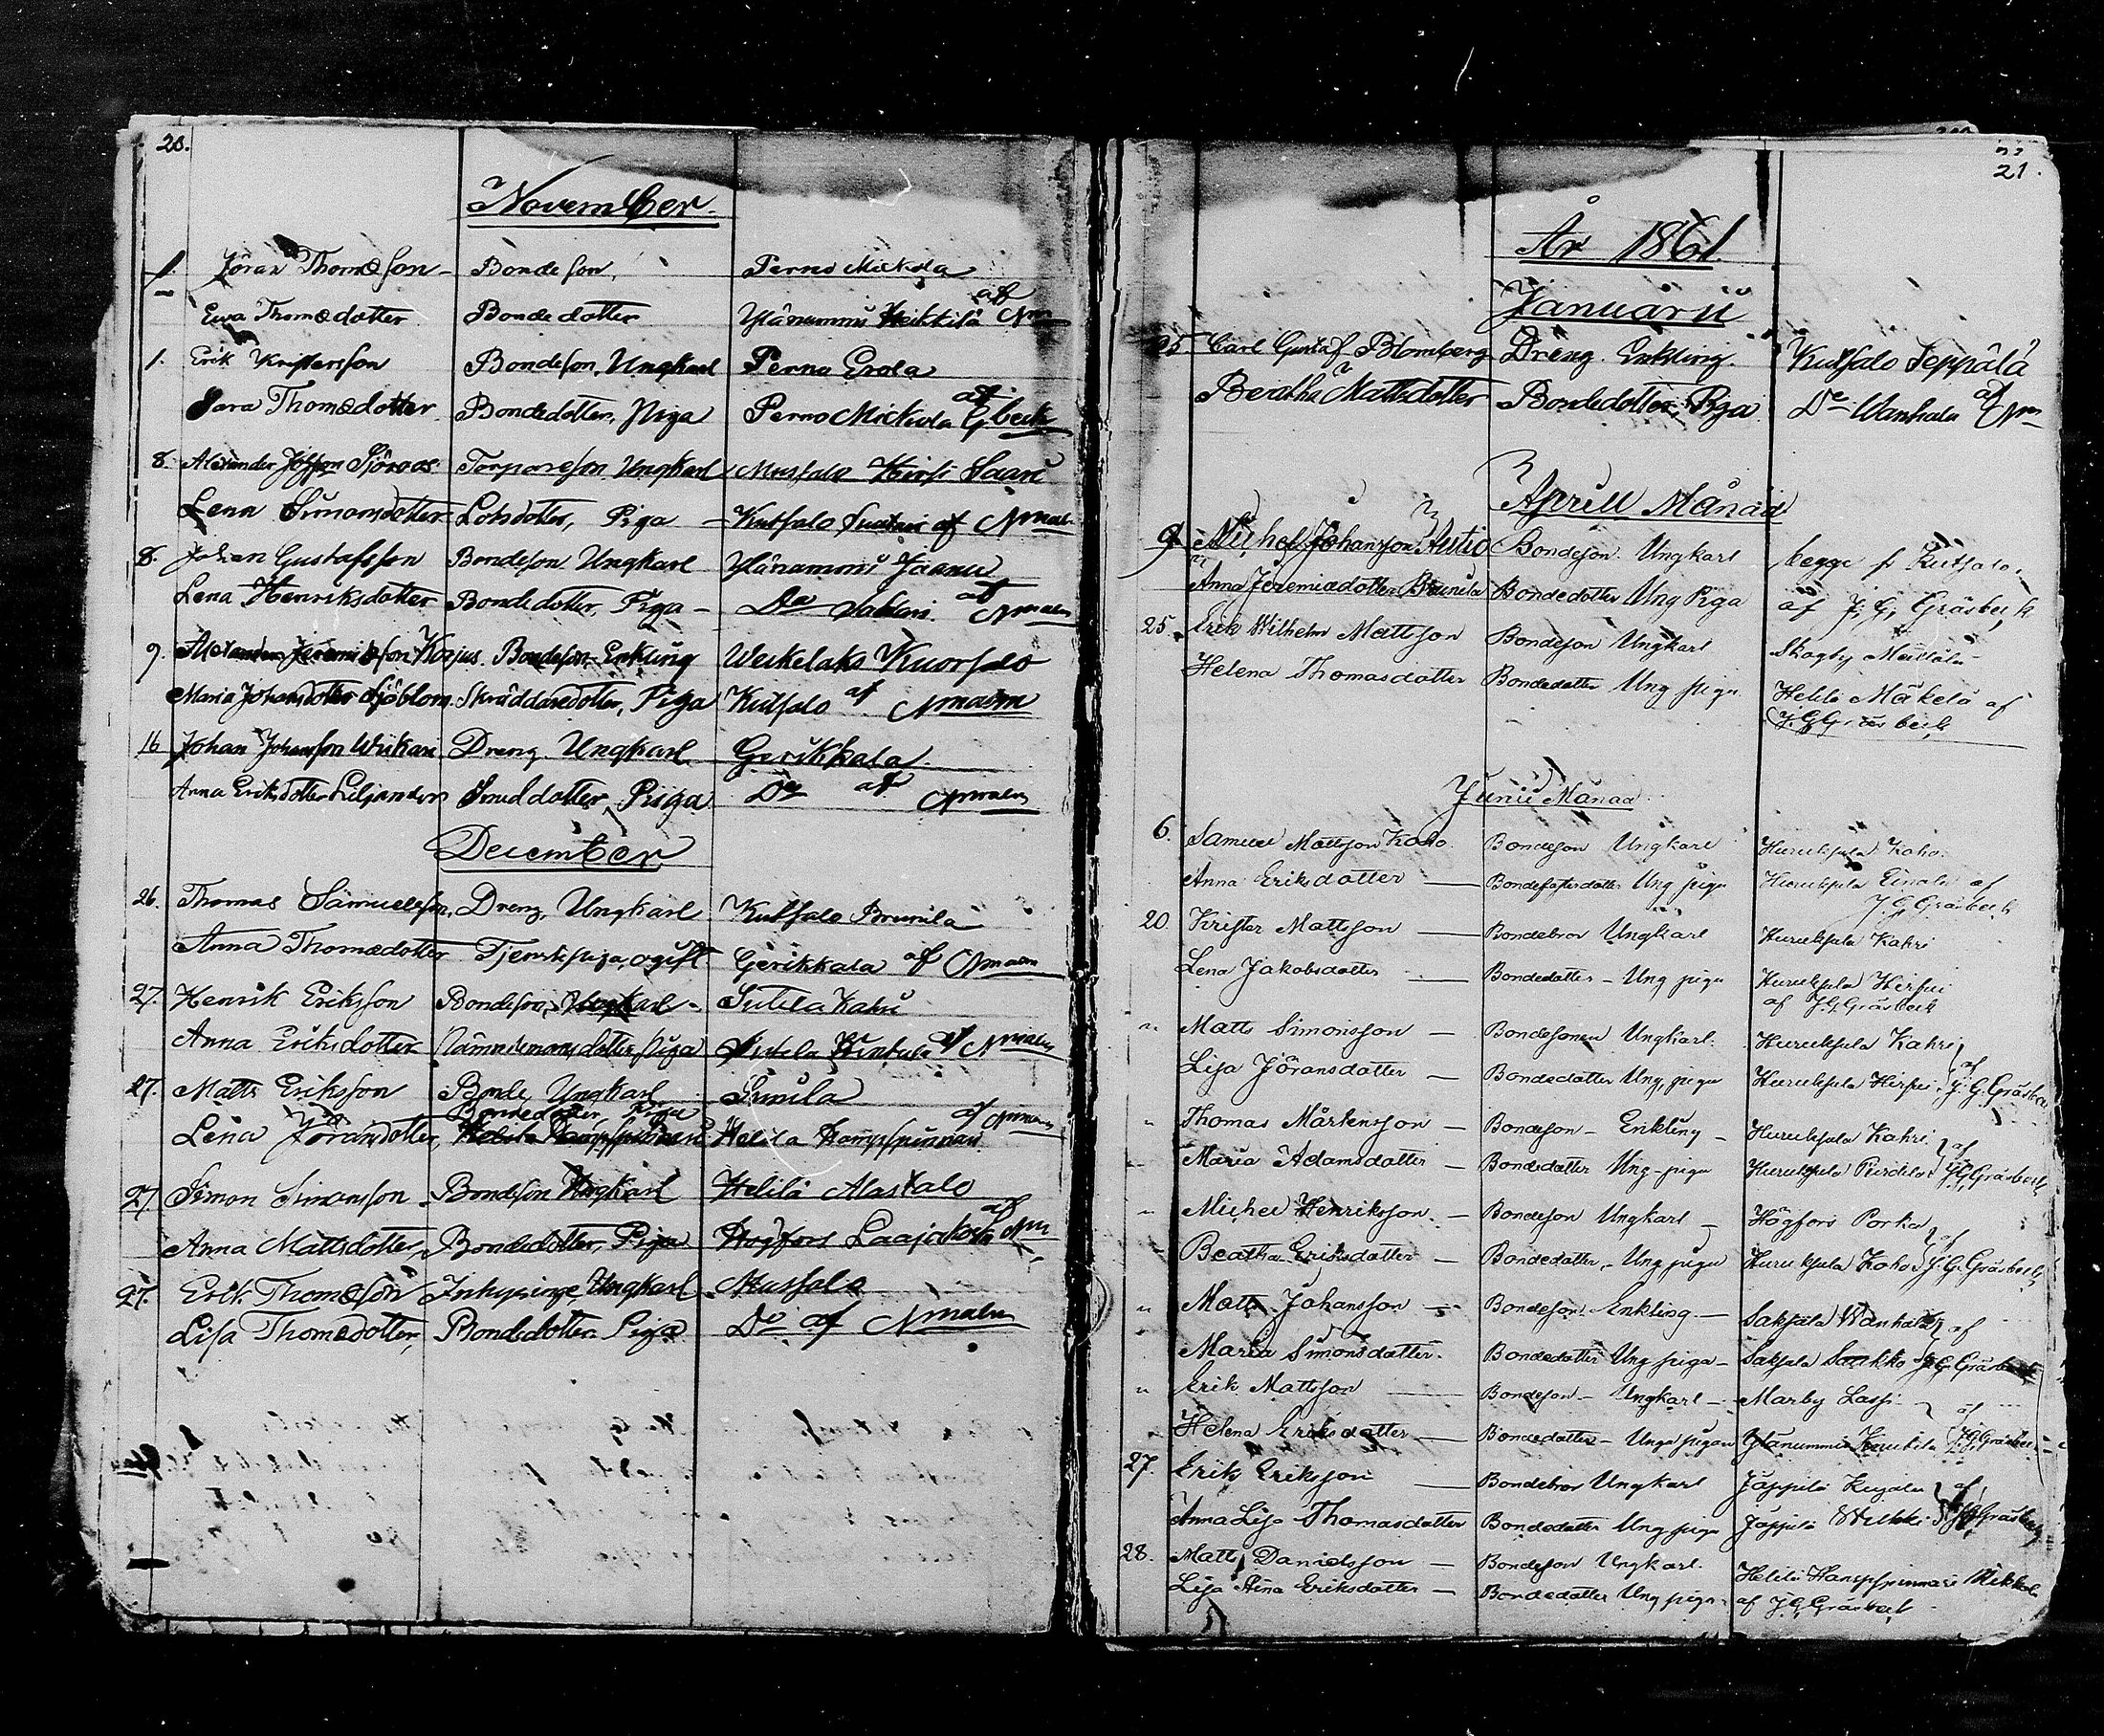 20.
November.
1. Jöran Thomæson - Bondeson, Perno Mickola
Ewa Thomædotter Bondedotter Ylänummi Heikkilä af Nm
1. Erik Kristersson Bondeson, Ungkarl Perno Erola
Sara Thomædotter Bondedotter, Piga Perno Mickola af Gbeck
8. Alexander Sjöroos Torpareson Ungkarl Mussalo Kirsi Saari
Lena Simonsdotter Lotsdotter, Piga - Kutsalo af Nmalm
8. Johan Gustafsson Bondeson Ungkarl Ylänummi Jaanu
Lena Henriksdotter Bondedotter, Piga - Do af Nmalm
9. Alexander Jeremiæson Korjus. Bondeson, Enkling Weikelaks Kuorsalo
Maria Johansdotter Sjöblom. Skräddaredotter, Piga Kutsalo af Nmalm
16 Johan Johansson Dreng Ungkarl Gerikkala
Anna Eriksdotter Liljander Smeddotter, Piga Do af Nmalm
December
26. Thomas Samuelsson, Dreng, Ungkarl Kutsalo Brunila
Anna Thomædotter Tjenstepiga, ogift Gerikkala af Nmalm
27. Henrik Eriksson Bondeson, Ungkarl - Sutela Kahri
Anna Eriksdotter Nämndemansdotter, piga Sutela af Nmalm
27. Matts Eriksson Bonde, Ungkarl Sunila
Bondedotter, Piga
Lena Jöransdotter, Helilä Hampspinnari af Nmalm
27 Simon Simonsson Bondeson Ungkarl Helilä Alastalo
Anna Mattsdotter, Bondedotter, Piga Högfors Laajakoski af Nm
27. Erik Thomæson Inhysinge, Ungkarl Mussalo
Lisa Thomædotter, Bondedotter Piga Do af Nmalm
21.
År 1861
Januarii
25. Carl Gustaf Blomberg Dreng. Enkling. Kutsalo Seppälä
Beatha Mattsdotter Bondedotter, Piga Do Wanhala af Nm
Aprill Månad
9. Michel Johansson Autio Bondeson Ungkarl begge fr Kutsalo,
Anna Jeremiædotter Brunila Bondedotter Ung Piga af J. G. Gräsbeck
25. Erik Wilhelm Mattsson Bondeson Ungkarl Skogby
Helena Thomasdotter Bondedotter Ung piga Helilä Mäkelä af
J. G. Gräsbeck
Junii Månad
6. Samuel Mattsson Koho. Bondeson Ungkarl Huruksela Koho.
Anna Eriksdotter — Ung piga Huruksela Einola af
J. G. Gräsbeck
20. Krister Mattsson — Bondebror Ungkarl Huruksela Kahri
Lena Jakobsdotter — Bondedotter - Ung piga Huruksela Hirsui
af J. G. Gräsbeck
" Matts Simonsson — Bondesonen Ungkarl. Huruksela Kahri
Lisa Jöransdotter — Bondedotter Ung piga Huruksela Hirsui af J. G. Gräsbeck
" Thomas Mårtensson — Bondeson - Enkling - Huruksela Kahri
Maria Adamsdotter — Bondedotter Ung - piga Huruksela af J. G. Gräsbeck
" Michel Henriksson — Bondeson Ungkarl — Högfors Porka
Beatha Eriksdotter — Bondedotter - Ung piga Huruksela Koho af J. G. Gräsbeck
" Matts Johansson — Bondeson Enkling — Saksala Wanhala
Maria Simonsdotter. Bondedotter Ung piga - Saksala Saukko af J. G. Gräsbeck
" Erik Mattsson — Bondeson - Ungkarl - Marby Lassi
Helena Eriksdotter — Bondedotter - Unga pigan Ylänummi af J. G. Gräsbeck
27. Erik Eriksson — Bondebror Ungkarl Jäppilä
Anna Lisa Thomasdotter Bondedotter Ung piga Jäppilä af J. G. Gräsbeck
28. Matts Danielsson — Bondeson Ungkarl. Helilä Hampspinnari Mikkola
Lisa Stina Eriksdotter — Bondedotter Ung piga - af J. G. Gräsbeck